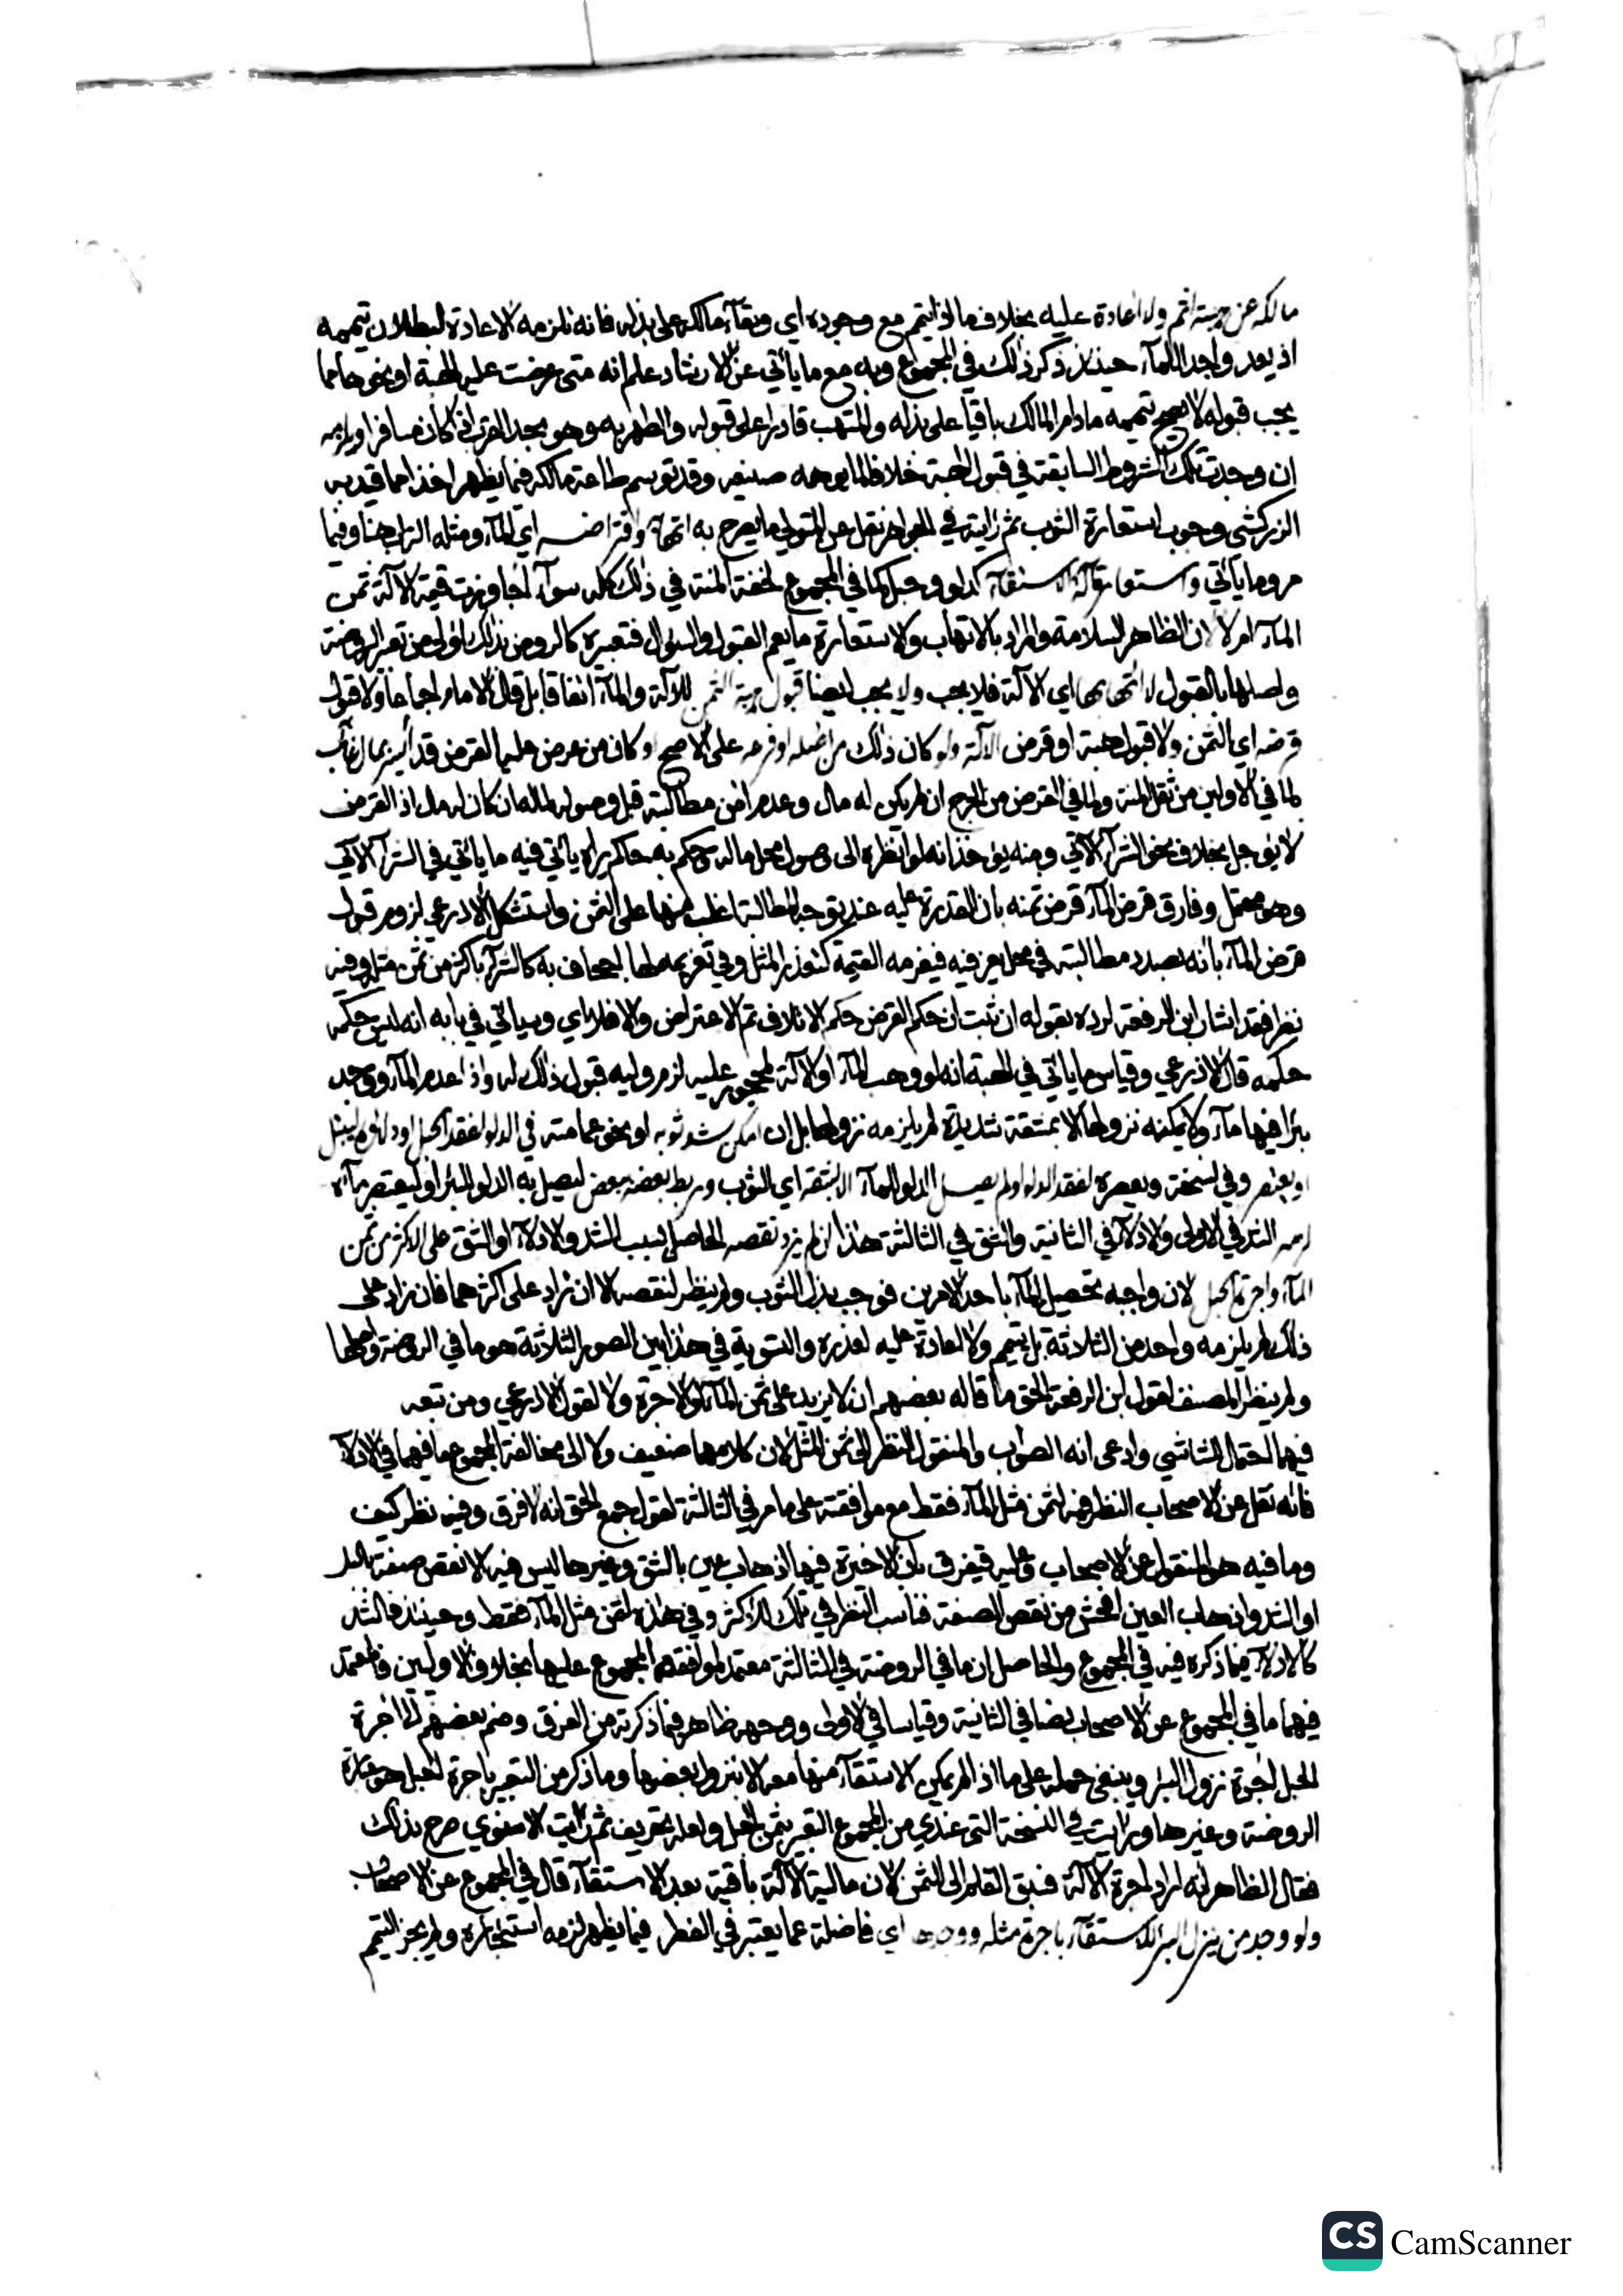 مالكه عن هبته اثم ولا اعادة عليه بخلاف ما اذا تيمم مع وجوده اي وبقاء مالكه على بذله فانه تلزمه الاعادة لبطلان تيممه
اذ يعد واجدا للماء حينئذ ذكر ذلك في المجموع وبه مع ما يأتي عن الارشاد علم انه متى عرضت عليه الهبة او نحوها مما
يجب قبوله لا يصح تيممه مادام المالك باقيا على بذله والمتهب قادرا على قبوله والطهر به وهو بحد القرب ان كان مسافرا
ان وجدت تلك الشروط السابقة في قبول الهبة خلافا لما يوهمه صنيعه وقد توسم طاعة مالكه فيما يظهر اخذا مما قيد به
الزركشي وجوب استعارة الثوب ثم رايته في الجواهر نقل عن المتولي ما يصرح به اتهابه واقتراضه اي الماء ومثله التراب هنا وفيما
مر وما يأتي واستعارة آلة الاستقاء كدلو وحبل كما في المجموع لخفة المنة في ذلك كله سواء اجاوزت قيمة الالة ثمن
الماء ام لا لان الظاهر السلامة والمراد بالاتهاب والاستعارة ما يعم القبول والسؤال فتعبيره كالروض بذلك اولى من تعبير الروضة
واصلها بالقبول لا اتهابها اي الالة فلا يجب ولا يجب ايضا قبول هبة الثمن للالة والماء اتفاقا بل قال الامام اجماعا ولا قبول
قرضه اي الثمن ولا قبول هبة او قرض الالة ولو كان ذلك من اصله او فرعه على الاصح او كان من عرض عليه القرض قد ايسر بمال غائب
لما في الاولين من ثقل المنة ولما في القرض من الحرج ان لم يكن له مال وعدم امن مطالبته قبل وصوله لماله ان كان له مال اذ القرض
لا يؤجل بخلاف نحو الشراء الاتي ومنه يؤخذ انه لو انظره الى وصول محل ماله وحكم به حاكم يراه يأتي فيه ما يأتي في الشراء الاتي
وهو محتمل وفارق قرض الماء قرض ثمنه بان القدرة عليه عند توجه المطالبة اغلب منها على الثمن واستشكل الاذرعي لزوم قبول
قرض الماء بانه بصدد مطالبته في محل يعز فيه فيغرمه القيمة كتعذر المثل وفي تغريمه لها اجحاف به كالشراء باكثر من ثمن مثله وفيه
نظر فقد اشار ابن الرفعة لرده بقوله ان ثبت ان حكم القرض حكم الاتلاف تم الاعتراض والا فلا اي وسيأتي في بابه انه ليس حكمه
حكمه قال الاذرعي وقياس ما يأتي في الهبة انه لو وهب الماء او الالة لمحجور عليه لزم وليه قبول ذلك له واذا عدم الماء ووجد
بئرا فيها ماء ولا يمكنه نزولها الا بمشقة شديدة لم يلزمه نزولها بل ان امكن شد ثوبه او نحو عمامته في الدلو لفقد الحبل او دلاؤه ليبتل
او يعتصر وفي نسخة ويعصره لفقد الدلو او لم يصل الدلو الماء الا بشقه اي الثوب وربط بعضه ببعض ليصل به الدلو البئر او ليعتصر ماءه
لزمه الشد في الاولى والادلاء في الثانية والشق في الثالثة هذا ان لم يزد نقصه الحاصل بسبب الشد والادلاء او الشق على الاكثر من ثمن
الماء واجرة الحبل لان واجبه تحصيل الماء باحد الامرين فوجب بذل الثوب ولم ينظر لنقصه الا ان زاد على اكثرهما فان زاد على
ذلك لم يلزمه واحد من الثلاثة بل يتيمم ولا اعادة عليه لعذره والتسوية في هذا بين الصور الثلاثة هو ما في الروضة واصلها
ولم ينظر المصنف لقول ابن الرفعة الحق ما قاله بعضهم ان لا يزيد على ثمن الماء ولا الاجرة ولا لقول الاذرعي ومن تبعه
فيها احتمال للشاشي وادعى انه الصواب والمنقول النظر الى ثمن المثل لان كلامهما ضعيف ولا الى مخالفة المجموع ما فيهما في الادلاء
فانه نقل عن الاصحاب النظر فيه لثمن مثل الماء فقط مع موافقته على ما مر في الثالثة لقول جمع الحق انه لا فرق وفيه نظر كيف
وما فيه هو المنقول عن الاصحاب وعليه فيفرق بان الاخيرة فيها اذهاب عين بالشق وغيرها ليس فيه الا نقص صفة بالبلل
او الشد واذهاب العين افحش من نقص الصفة فناسب النظر في تلك للاكثر وفي هذه لثمن مثل الماء فقط وحينئذ فالشد
كالادلاء فيما ذكره فيه في المجموع والحاصل ان ما في الروضة في الثالثة معتمد لموافقة المجموع عليها بخلاف الاوليين فالمعتمد
فيهما ما في المجموع عن الاصحاب نصا في الثانية وقياسا في الاولى ووجهه ظاهر فيما ذكرته من الفرق وضم بعضهم الى اجرة
الحبل اجرة نزول البئر وينبغي حمله على ما اذا لم يمكن الاستقاء منها معه الا بنزول بعضها وما ذكر من التعبير باجرة الحبل هو عبارة
الروضة وغيرها ورايت في النسخة التي عندي من المجموع التعبير بثمن الحبل ولعله تحريف ثم رايت الاسنوي صرح بذلك
فقال الظاهر انه اراد اجرة الالة فسبق القلم الى الثمن لان مالية الالة باقية بعد الاستقاء قال في المجموع عن الاصحاب
ولو وجد من ينزل البئر للاستقاء باجرة مثله ووجدها اي فاضلة عما يعتبر في الفطر فيما يظهر لزمه استئجاره ولم يجز التيمم
CS CamScanner